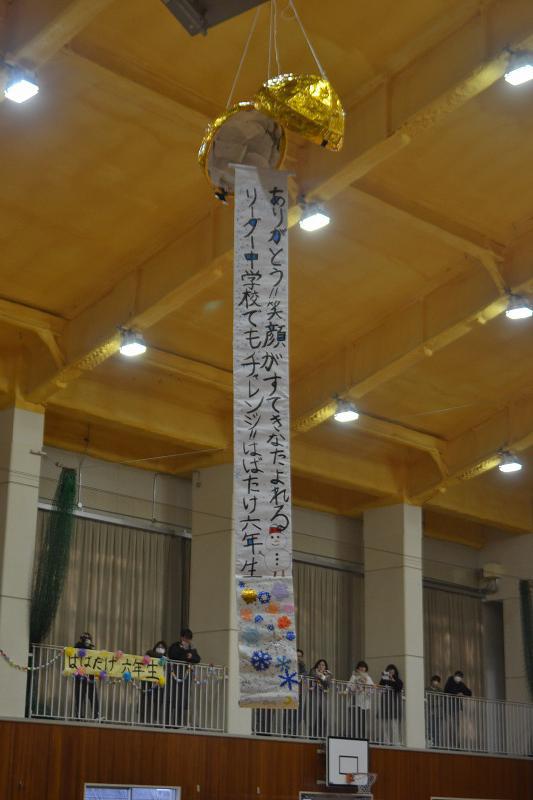 ありがとう!!笑顔がすてきなたよれる
リーダー中学校でもチャレンジ!!はばたけ六年生
はばたけ六年生